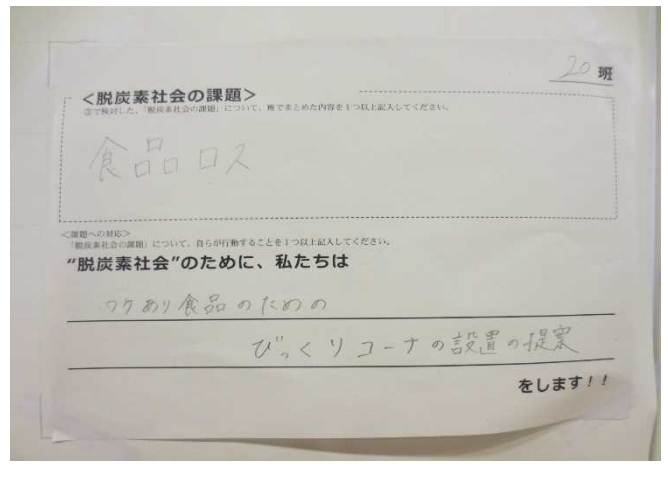 20 班
＜脱炭素社会の課題＞
③で検討した、「脱炭素社会の課題」について、班でまとめた内容を1つ以上記入してください。
食品ロス
＜課題への対応＞
「脱炭素社会の課題」について、自らが行動することを1つ以上記入してください。
“脱炭素社会”のために、私たちは
ワケあり食品のための
びっくりコーナの設置の提案
をします！！